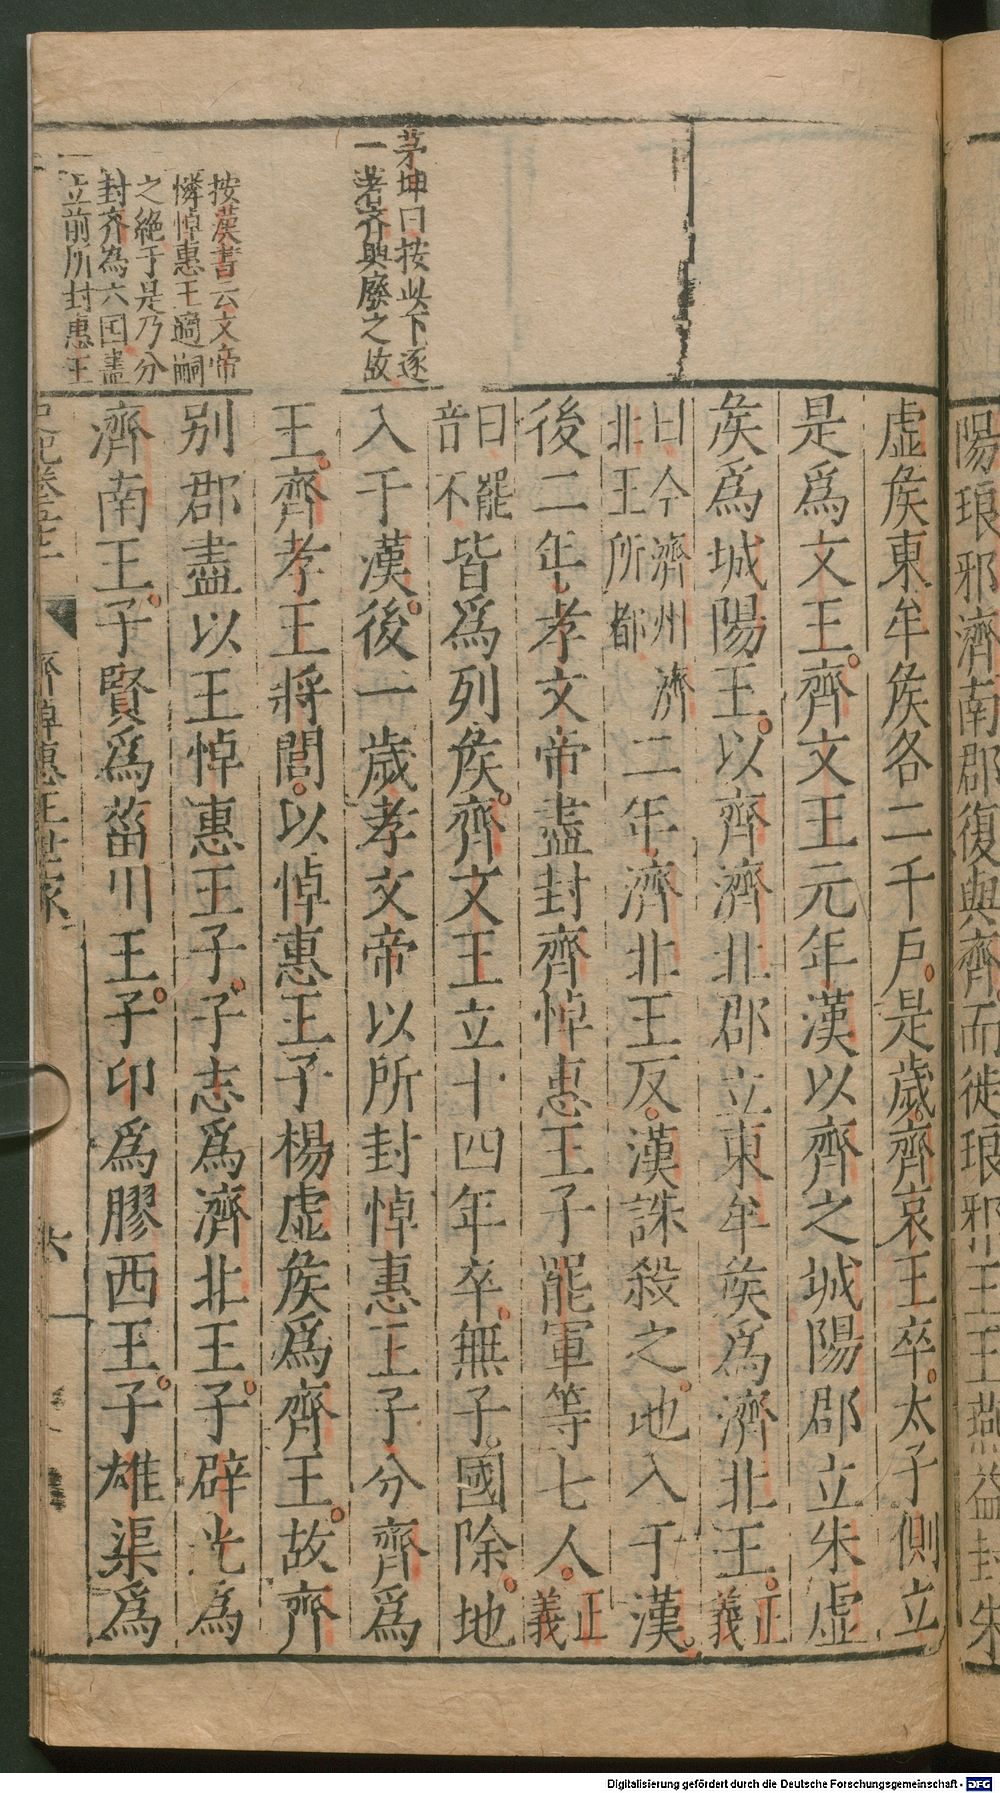 陽琅邪濟南郡復與齊而徙琅邪王王燕益封朱
虛矦東牟矦各二千戶是歲齊哀王卒太子側立
是爲文王齊文王元年漢以齊之城陽郡立朱虛
矦爲城陽王以齊濟北郡立東牟矦爲濟北王正義
曰今濟州濟
北王所都
二年濟北王反漢誅殺之地入于漢
後二年孝文帝盡封齊悼惠王子罷軍等七人正義
曰罷
音不
皆爲列矦齊文王立十四年卒無子國除地
入于漢後一歲孝文帝以所封悼惠王子分齊爲
王齊孝王將閭以悼惠王子楊虛矦爲齊王故齊
别郡盡以王悼惠王子子志爲濟北王子辟光爲
濟南王子賢爲菑川王子卬爲膠西王子雄渠爲
茅坤曰按此下逐
一著齊興廢之故
按漢書云文帝
憐悼惠王適嗣
之絶于是乃分
封齊為六国盡
立前所封惠王
齊悼惠王世家
六
Digitalisierung gefördert durch die Deutsche Forschungsgemeinschaft - DFG